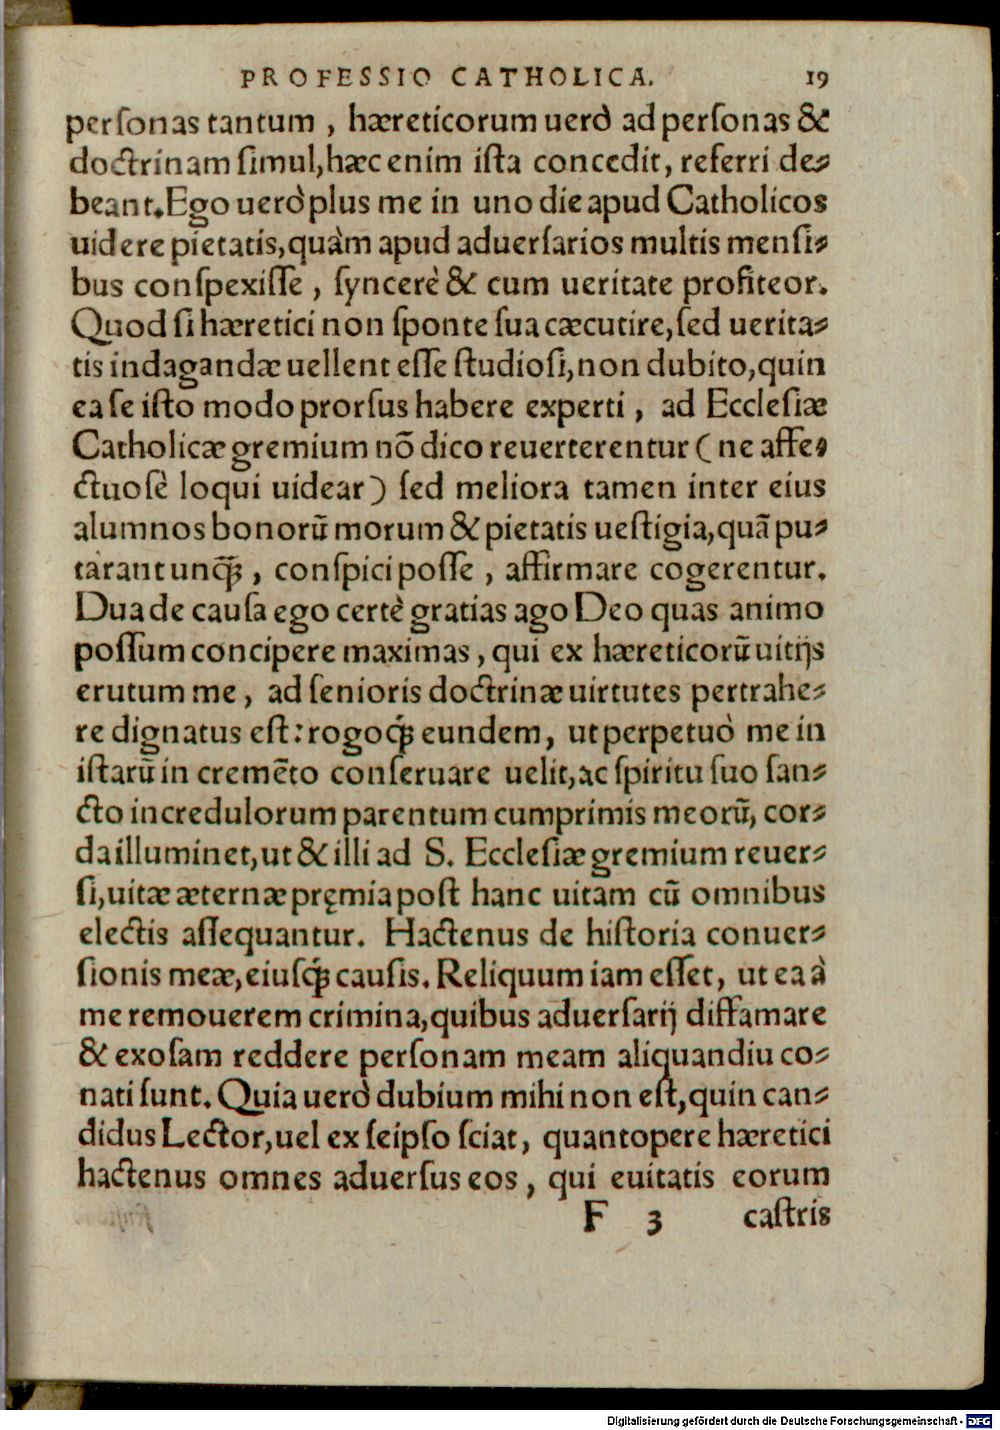 PROFESSIO CATHOLICA. 19
perſonas tantum , hæreticorum uerò ad perſonas &
doctrinam ſimul, hæc enim iſta concedit, referri de-
beant. Ego uerò plus me in uno die apud Catholicos
uidere pietatis, quàm apud aduerſarios multis menſi-
bus conſpexiſſe , ſyncerè & cum ueritate profiteor.
Quod ſi hæretici non ſponte ſua cæcutire, ſed uerita-
tis indagandæ uellent eſſe ſtudioſi, non dubito, quin
ea ſe iſto modo prorſus habere experti , ad Eccleſiæ
Catholicæ gremium nō dico reuerterentur ( ne affe-
ctuosè loqui uidear ) ſed meliora tamen inter eius
alumnos bonorū morum & pietatis ueſtigia, quā pu-
tarant unꝗ̃ , conſpici poſſe , affirmare cogerentur.
Dua de cauſa ego certè gratias ago Deo quas animo
poſſum concipere maximas , qui ex hæreticorū uitijs
erutum me , ad ſenioris doctrinæ uirtutes pertrahe-
re dignatus eſt: rogoq́ꝫ eundem, ut perpetuò me in
iſtarū in cremēto conſeruare uelit, ac ſpiritu ſuo ſan-
cto incredulorum parentum cumprimis meorū, cor-
da illuminet, ut & illi ad S. Eccleſiæ gremium reuer-
ſi, uitæ æternæ pręmia poſt hanc uitam cū omnibus
electis aſſequantur. Hactenus de hiſtoria conuer-
ſionis meæ, eiuſq́ꝫ cauſis. Reliquum iam eſſet, ut ea à
me remouerem crimina, quibus aduerſarij diffamare
& exoſam reddere perſonam meam aliquandiu co-
nati ſunt. Quia uerò dubium mihi non eſt, quin can-
didus Lector, uel ex ſeipſo ſciat, quantopere hæretici
hactenus omnes aduerſus eos , qui euitatis eorum
F 3 caſtris
Digitalisierung gefördert durch die Deutsche Forschungsgemeinschaft - DFG